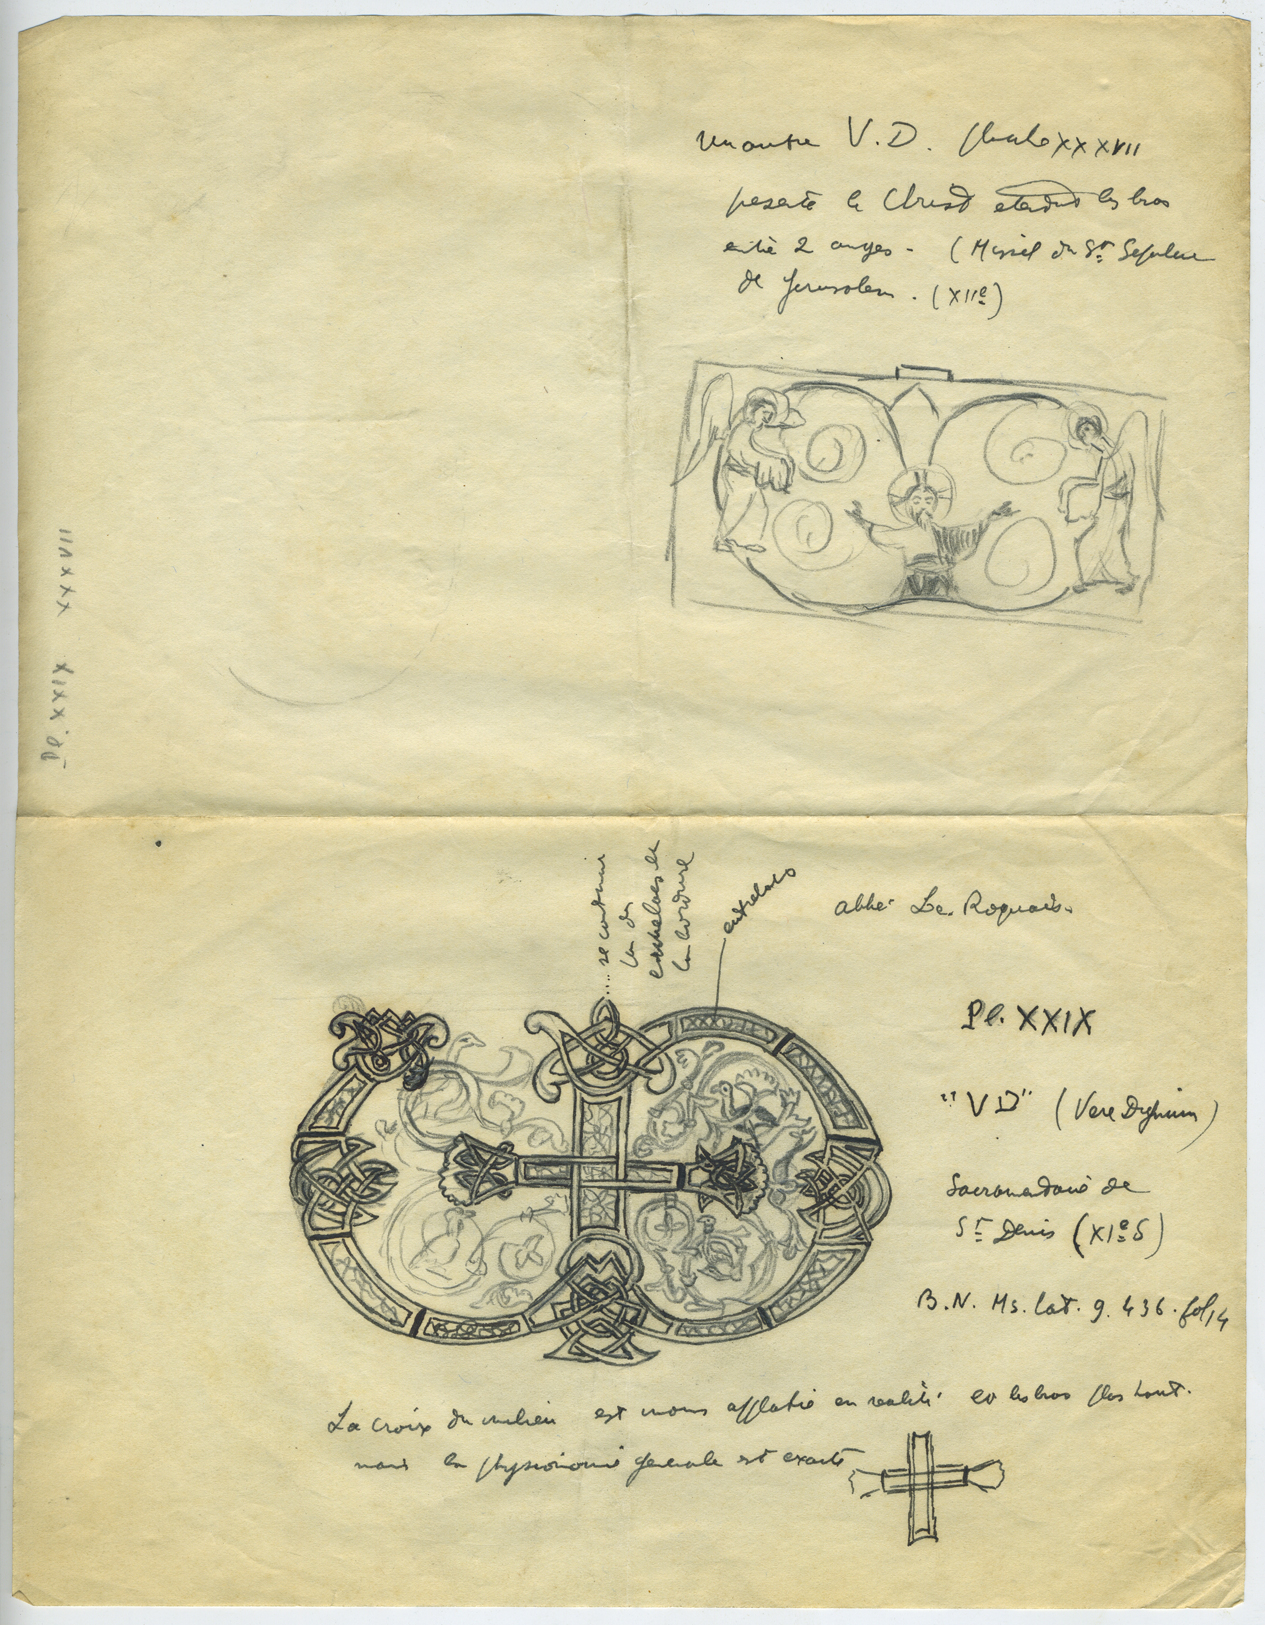 Un autre V.D. planche XXXVII
présente le Christ étendant les bras
entre 2 anges - (Missel du St Sepulcre
de Jerusalem. (XIIe)
XXXVII
pl. XXIX
se continue
en des
entrelacs et
la bordure
entrelacs
abbé Le. Roquais.
Pl. XXIX
"VD" (Vere Dignum)
Sacramentaire de
St Denis (XIe S)
B.N. Ms. lat. 9.436. fol 14
La croix du milieu est moins applatie en realité et les bras plus haut.
mais la physionomie generale est exacte